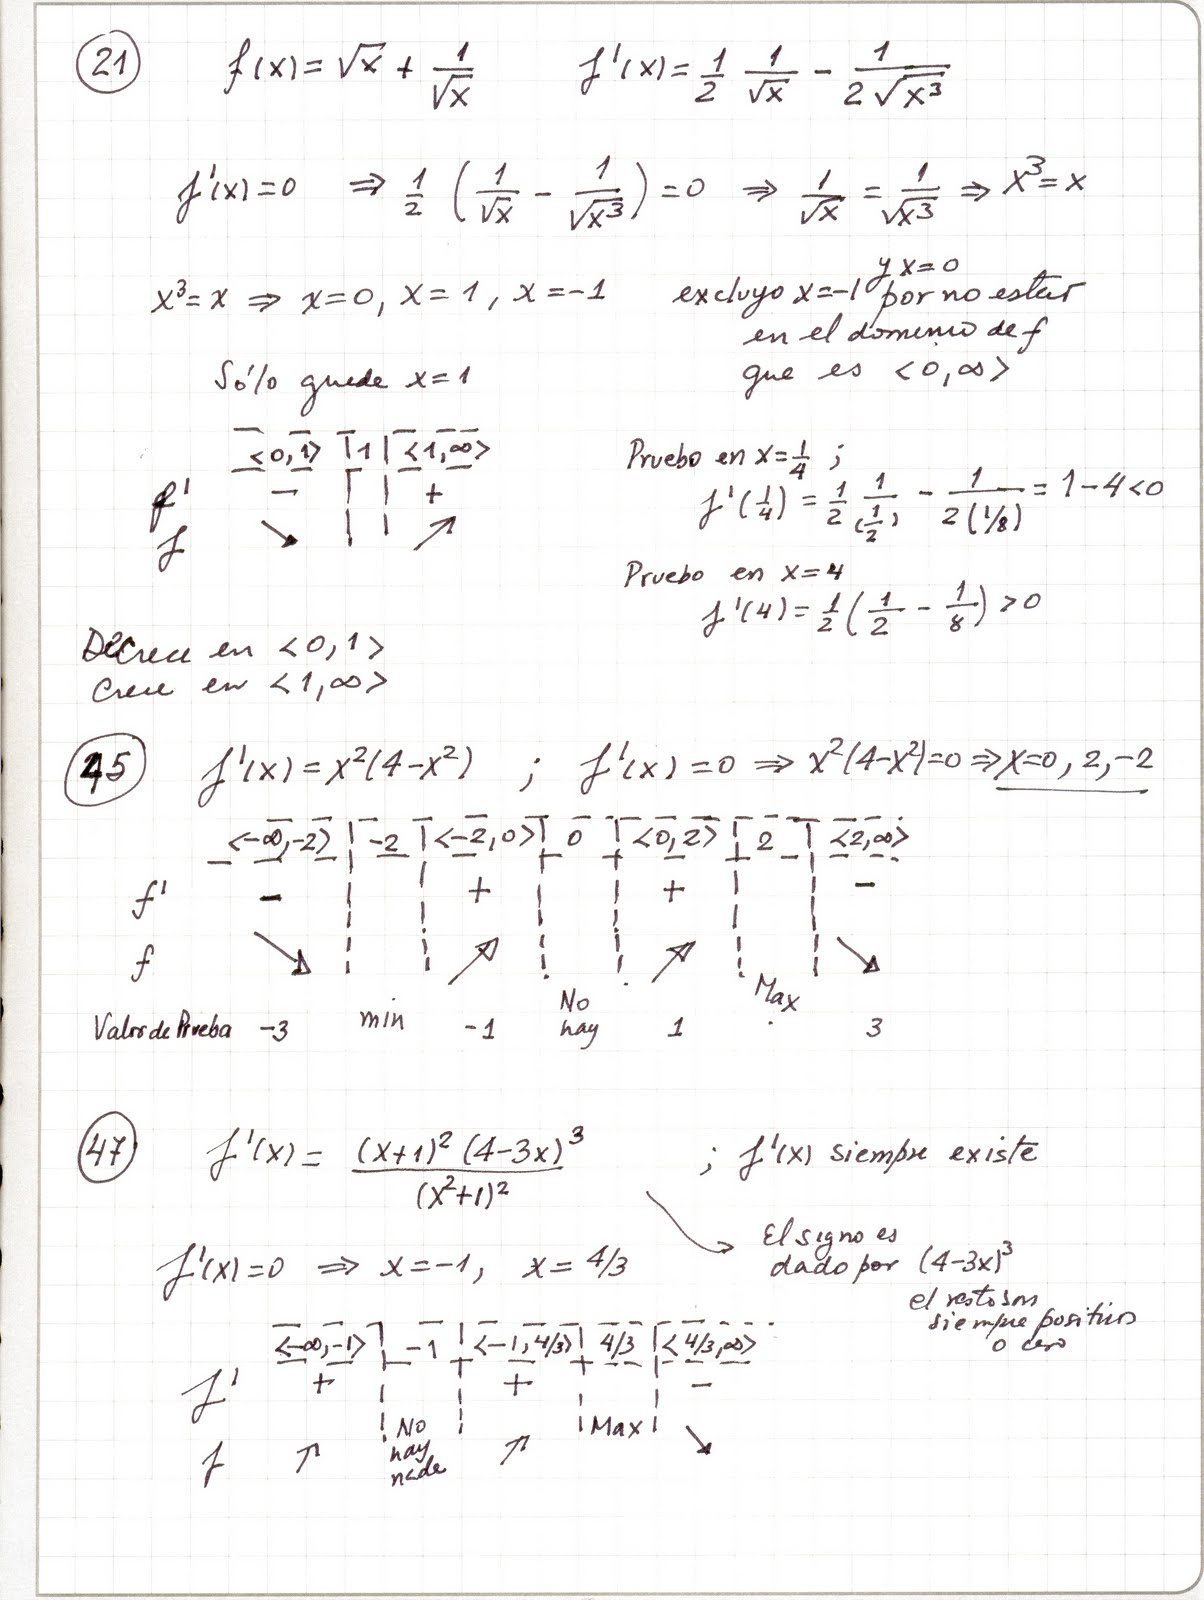 21 f(x) = √x + 1/√x f'(x) = 1/2 1/√x − 1/(2√x³)
f'(x) = 0 ⇒ 1/2 (1/√x − 1/√x³) = 0 ⇒ 1/√x = 1/√x³ ⇒ x³ = x
x³ = x ⇒ x = 0, x = 1, x = −1
y x = 0
excluyo x = −1 por no estar
en el dominio de f
que es <0, ∞>
Sólo quede x = 1
<0, 1> 1 <1, ∞>
f' − +
f ↘ ↗
Pruebo en x = 1/4 ;
f'(1/4) = 1/2 1/(1/2) − 1/(2(1/8)) = 1 − 4 < 0
Pruebo en x = 4
f'(4) = 1/2 (1/2 − 1/8) > 0
Decrece en <0, 1>
Crece en <1, ∞>
45 f'(x) = x²(4 − x²) ; f'(x) = 0 ⇒ x²(4 − x²) = 0 ⇒ x = 0, 2, −2
<−∞, −2> −2 <−2, 0> 0 <0, 2> 2 <2, ∞>
f' − + + −
f ↘ ↗ ↗ ↘
Valor de Prueba −3 min −1 No hay 1 Max 3
47 f'(x) = (x+1)² (4−3x)³/(x²+1)² ; f'(x) siempre existe
El signo es
dado por (4−3x)³
el resto son
siempre positivos
o cero
f'(x) = 0 ⇒ x = −1, x = 4/3
<−∞, −1> −1 <−1, 4/3> 4/3 <4/3, ∞>
f' + + −
f ↗ No hay nade ↗ Max ↘